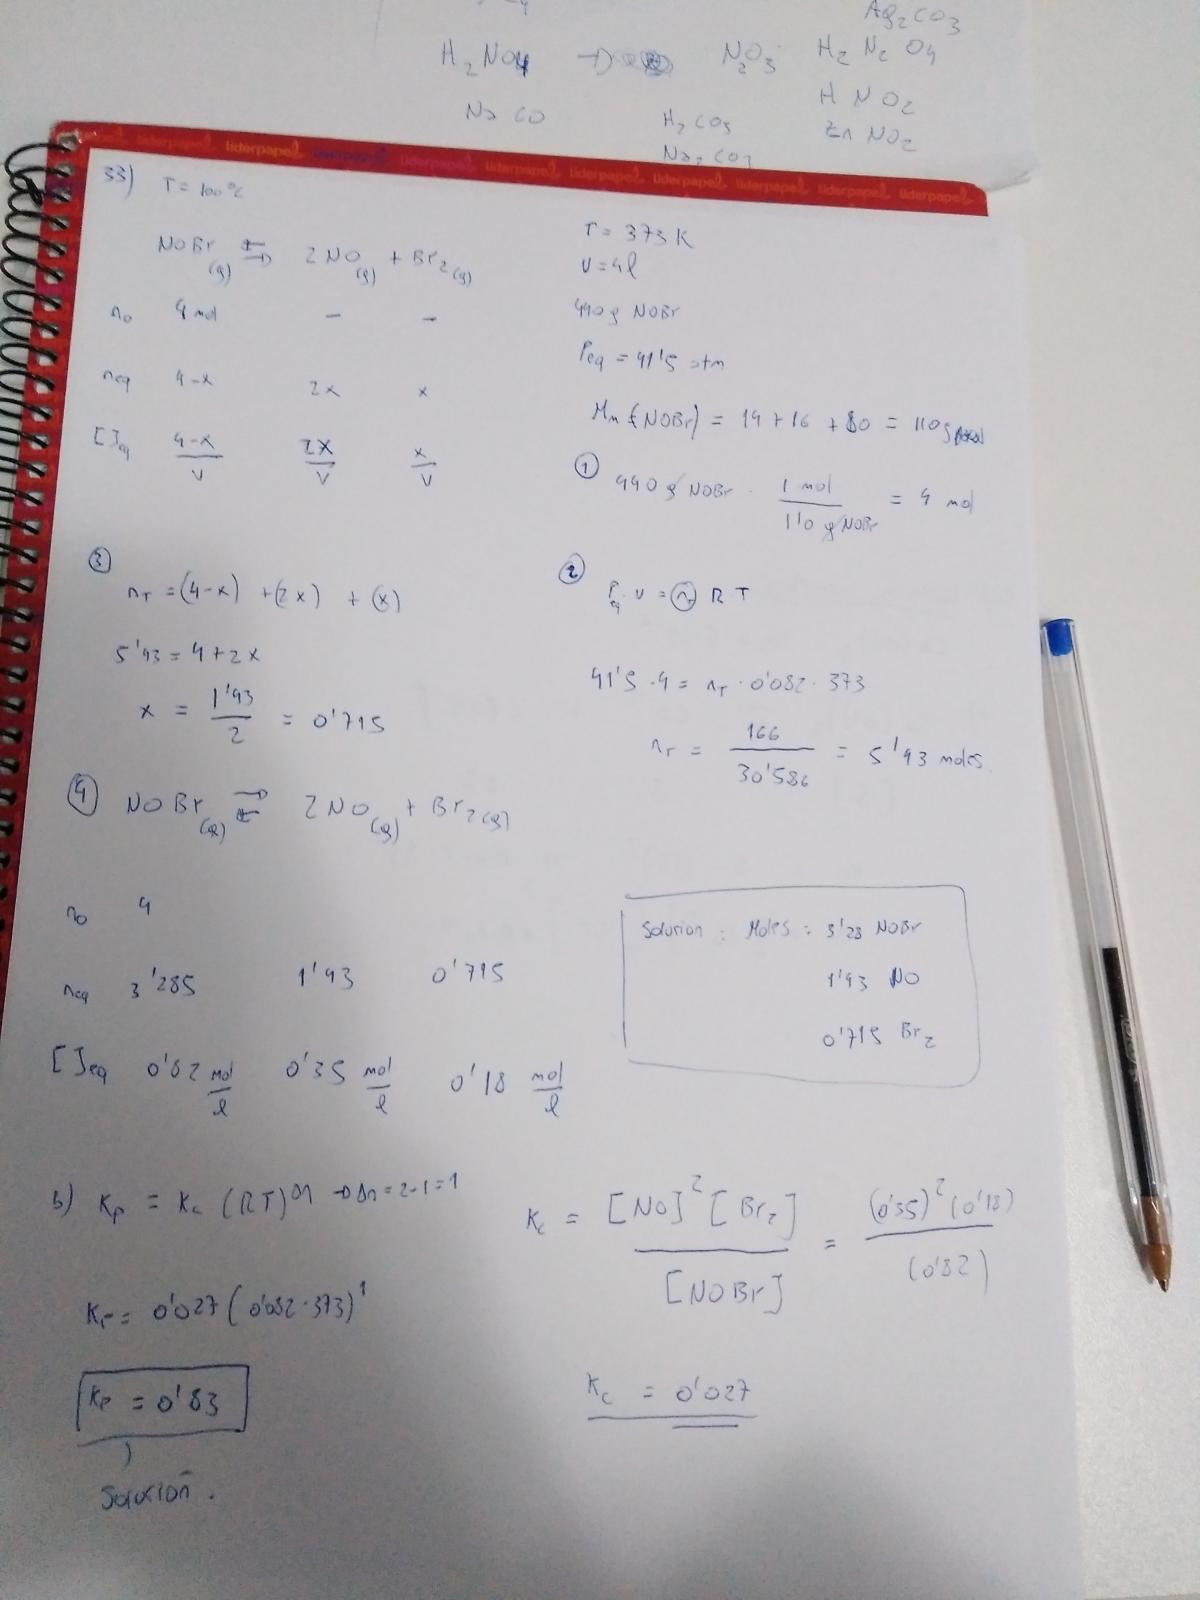 Ag2CO3
H2NO4 → N2O3 H2 N2 O4
H NO2
Na CO H2CO3 Zn NO2
Na2CO3
liderpapel liderpapel liderpapel liderpapel liderpapel liderpapel liderpapel liderpapel liderpapel
33) T = 100ºC
NOBr(g) ⇄ 2NO(g) + Br2(g)
n0 4 mol - -
neq 4-x 2x x
[ ]eq (4-x)/V 2x/V x/V
T = 373 K
V = 4l
440g NOBr
Peq = 41'5 atm
Mm (NOBr) = 14 + 16 + 80 = 110g
① 440 g NOBr · 1 mol / 110 g NOBr = 4 mol
② Peq · V = nT R T
41'5 · 4 = nT · 0'082 · 373
nT = 166 / 30'586 = 5'43 moles.
③ nT = (4-x) + (2x) + (x)
5'43 = 4 + 2x
x = 1'43 / 2 = 0'715
④ NOBr(g) ⇄ 2NO(g) + Br2(g)
n0 4
neq 3'285 1'43 0'715
[ ]eq 0'82 mol/l 0'35 mol/l 0'18 mol/l
Solucion : Moles : 3'28 NOBr
1'43 NO
0'715 Br2
b) Kp = Kc (RT)^Δn → Δn = 2-1 = 1
Kc = [NO]² [Br2] / [NOBr] = (0'35)² (0'18) / (0'82)
Kp = 0'027 (0'082 · 373)¹
Kp = 0'83
Kc = 0'027
Solución.